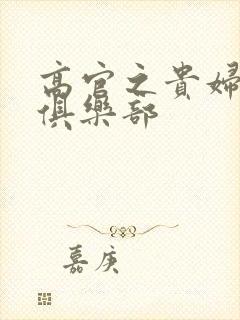 高官之貴婦
俱樂部
嘉庚